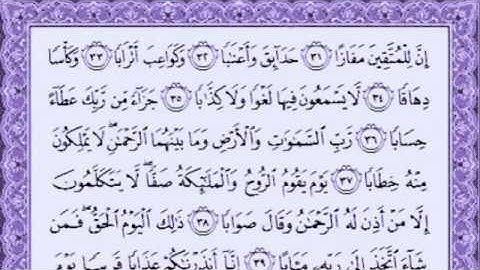 إِنَّ لِلْمُتَّقِينَ مَفَازًا ٣١ حَدَآئِقَ وَأَعْنَـٰبًا ٣٢ وَكَوَاعِبَ أَتْرَابًا ٣٣ وَكَأْسًا
دِهَاقًا ٣٤ لَّا يَسْمَعُونَ فِيهَا لَغْوًا وَلَا كِذَّٰبًا ٣٥ جَزَآءً مِّن رَّبِّكَ عَطَآءً
حِسَابًا ٣٦ رَّبِّ ٱلسَّمَـٰوَٰتِ وَٱلْأَرْضِ وَمَا بَيْنَهُمَا ٱلرَّحْمَـٰنِ ۖ لَا يَمْلِكُونَ
مِنْهُ خِطَابًا ٣٧ يَوْمَ يَقُومُ ٱلرُّوحُ وَٱلْمَلَـٰٓئِكَةُ صَفًّا ۖ لَّا يَتَكَلَّمُونَ
إِلَّا مَنْ أَذِنَ لَهُ ٱلرَّحْمَـٰنُ وَقَالَ صَوَابًا ٣٨ ذَٰلِكَ ٱلْيَوْمُ ٱلْحَقُّ ۖ فَمَن
شَآءَ ٱتَّخَذَ إِلَىٰ رَبِّهِۦ مَـَٔابًا ٣٩ إِنَّآ أَنذَرْنَـٰكُمْ عَذَابًا قَرِيبًا يَوْمَ